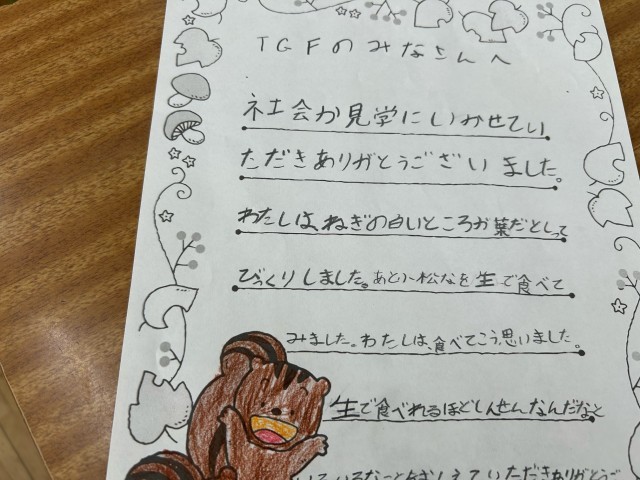 TGFのみなさんへ
社会か見学にいかせてい
ただきありがとうございました。
わたしは、ねぎの白いところが葉だとしって
びっくりしました。あと小松なを生で食べて
みました。わたしは、食べてこう思いました。
生で食べれるほどしんせんなんだなと
いろいろなことをおしえていただきありがとうご